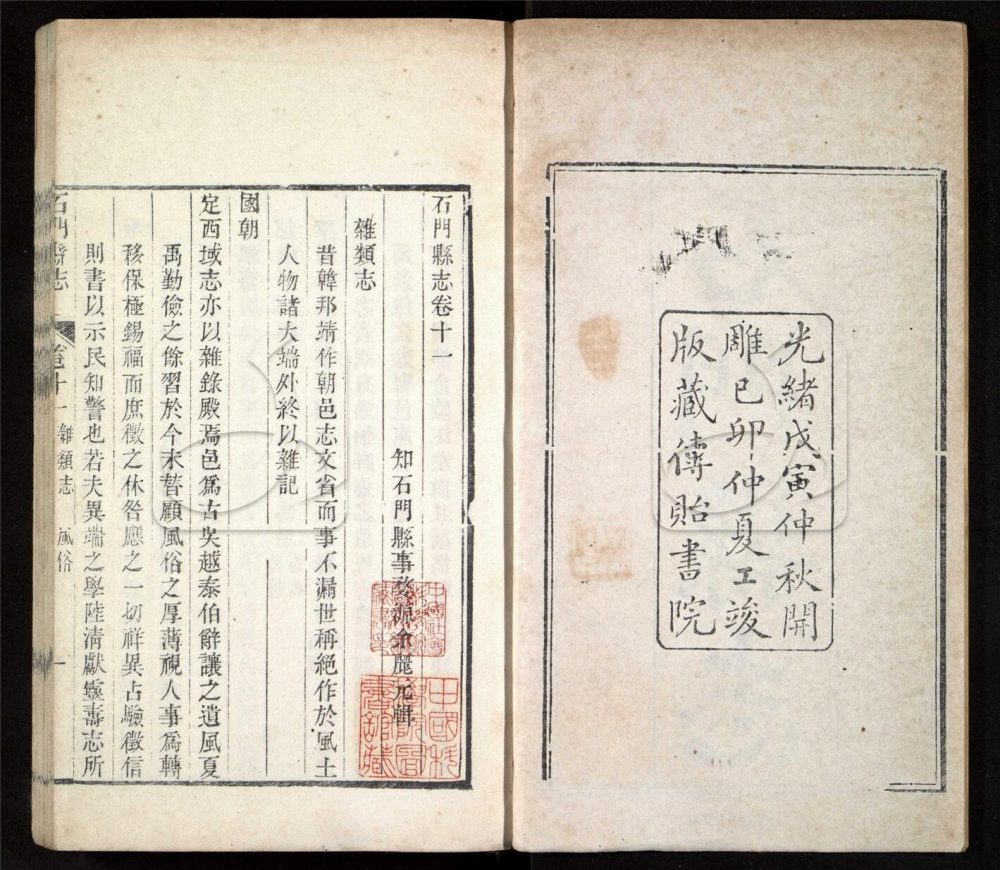 光緒戊寅仲秋開
雕己卯仲夏工竣
版藏傳貽書院
石門縣志卷十一
知石門縣事婺源余麗元輯
雜類志
昔韓邦靖作朝邑志文省而事不漏世稱絕作於風土
人物諸大端外終以雜記
國朝
定西域志亦以雜錄殿焉邑爲古吳越泰伯辭讓之遺風夏
禹勤儉之餘習於今未替顧風俗之厚薄視人事爲轉
移保極錫福而庶徵之休咎應之一切祥異占驗徵信
則書以示民知警也若夫異端之學陸清獻靈壽志所
石門縣志 卷十一 雜類志 風俗 一
中國科
學院圖
書館藏